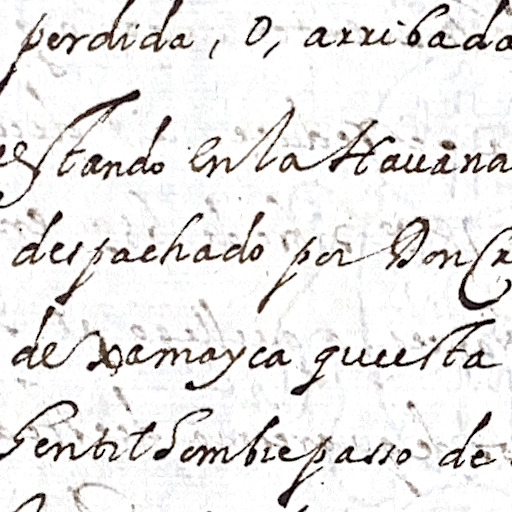 perdida, o, arribada
estando en la Hauana
despachado por Don
de Xamayca questa
Gentil hombre passo de